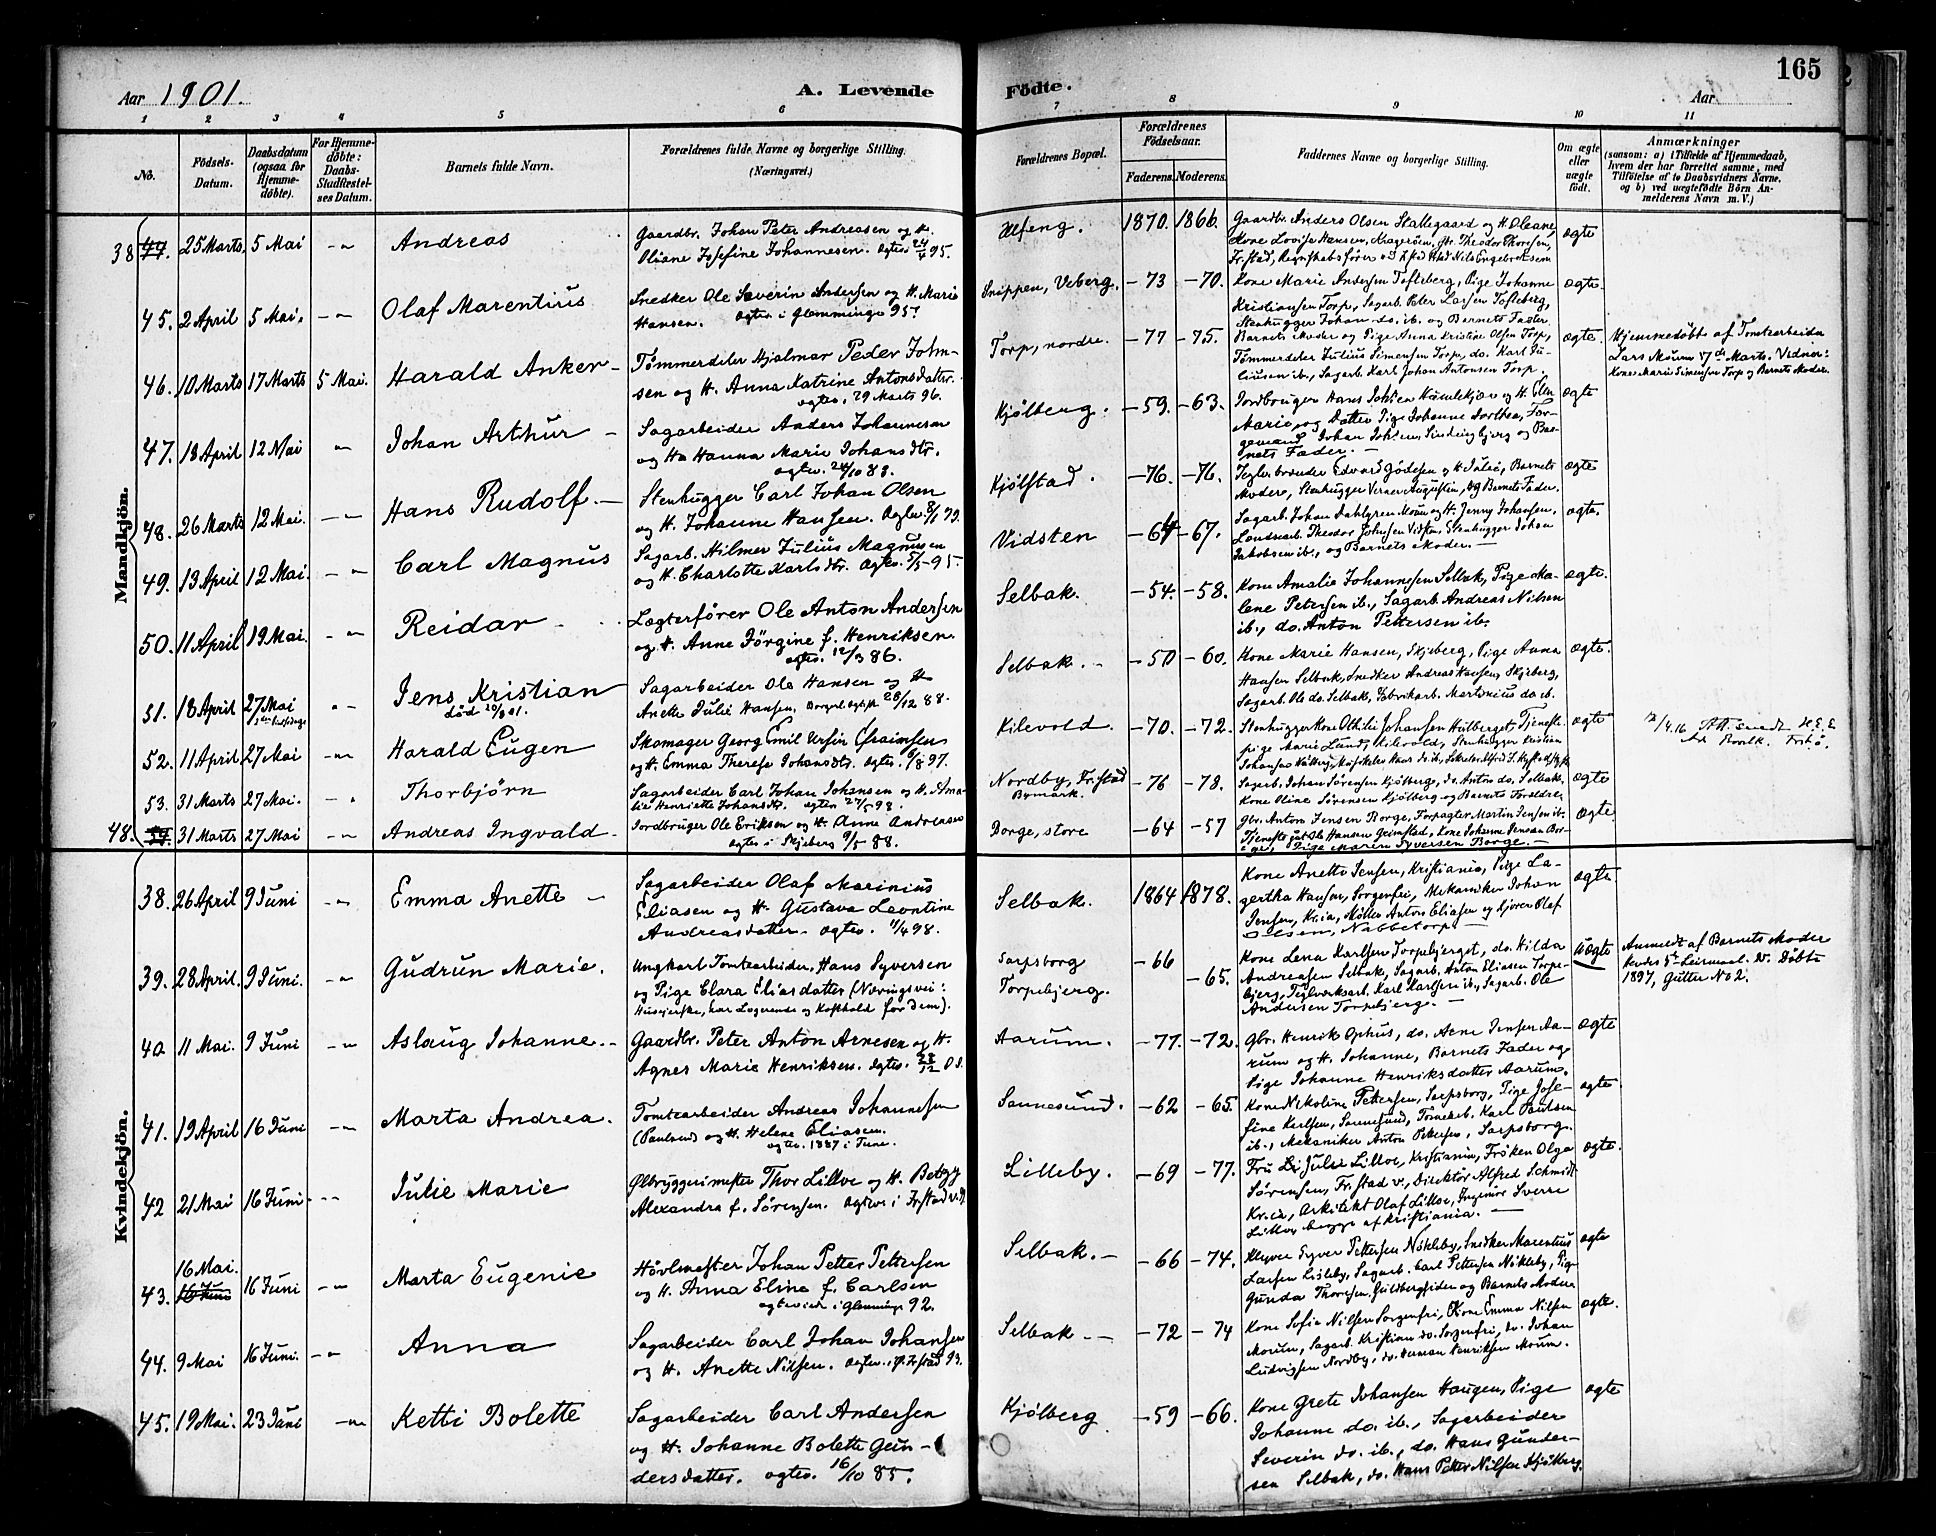 165
Aar 1901. A. Levende Födte. Aar
1 2 3 4 5 6 7 8 9 10 11
No. Födsels-Datum. Daabsdatum (ogsaa for Hjemme-döbte). For Hjemme-döbte: Daabs-Stadfæstel-ses Datum. Barnets fulde Navn. Forældrenes fulde Navne og borgerlige Stilling. (Næringsvei.) Forældrenes Bopæl. Forældrenes Födselsaar. Faderens. Moderens. Faddernes Navne og borgerlige Stilling. Om ægte eller uægte födt. Anmærkninger
(saasom: a) i Tilfælde af Hjemmedaab, hvem der har forrettet samme, med Tilföielse af to Daabsvidners Navne, og b) ved uægtefödte Börn An-melderens Navn m. V.)
Mandkjön.
38 44. 25 Marts 5 Mai -"- Andreas
Gaardbr. Johan Peter Andreasen og H.
Oliane Josefine Johannesen. Ægtev. 95.
1870. 1866. Gaardbr. Anders Olsen Stallegaard og H. Oleane,
ægte
45. 2 April 5 Mai. -"- Olaf Marentius
Snedker Ole Severin Andersen og H. Marie
Hansen. Ægtev. i Glemminge 95.
Snippen, Veberg. -73 -70. Kone Marie Andersen Tofteberg, Pige Johanne
Kristiansen Torp, Sagarb. Peter Larsen Tofteberg,
Stenhugger Johan do. ib. og Barnets Fader
ægte.
46. 10 Marts 17 Marts 5 Mai. Harald Anker -
Tømmerdeler Hjalmar Peder Johnsen
og H. Anna Katrine Antonsdatter.
ægtev. 29 Marts 96.
Torp, nordre. -77 -75. Barnets Moder og Pige Anna Kristine Olsen Torp,
Tømmerdeler Julius Simensen Torp, do. Karl Ju-
liusen ib., Sagarb. Karl Johan Antonsen Torp.
ægte. Hjemmedøbt af Tomtearbeider
Lars Moum 17de Marts. Vidner:
Kone Marie Simensen Torp og Barnets Moder.
47. 18 April 12 Mai -"- Johan Arthur -
Sagarbeider Anders Johannesen
og H. Hanna Marie Johansdtr.
ægtev. 28/10 83.
Kjølberg. -59. -63.
Marie og Datter Pige Johanne Dorthea,
nets Fader. -
ægte
48. 26 Marts 12 Mai. -"- Hans Rudolf -
Stenhugger Carl Johan Olsen
og H. Johanne Hansen.
Kjølstad. -76. -76.
Modere, Stenhugger Verner Augustin, og Barnets Fader.
ægte
49. 13 April 12 Mai. -"- Carl Magnus
Sagarb. Hilmer Julius Magnussen
og H. Charlotte Karlsdtr. Ægtev. 5/5 95.
Vidsten -64 -67. Sagarb. Johan Dahlgren Moum og H. Jenny Johansen,
Landarb. Theodor Johnsen Vidsten, Stenhugger Johan
Jakobsen ib., og Barnets Moder. -
ægte.
50. 11 April 19 Mai. -"- Reidar -
Lægterfører Ole Anton Andersen
og H. Anne Jörgine f. Henriksen.
ægtev. 12/3 86.
Selbak. -54. -58. Kone Amalie Johannesen Selbak, Pige Ma-
lene Petersen ib., Sagarb. Andreas Nilsen
ib., do. Anton Pettersen ib.
ægte.
51. 18 April 27 Mai -"- Jens Kristian
Sagarbeider Ole Hansen og H.
Anette Julie Hansen. 28/12 88.
Selbak. - -50 -60. Kone Marie Hansen, Skjeberg, Pige Anna
Hansen Selbak, Snedker Andreas Hansen Skjeberg,
Sagarb. Ole do. Selbak, Fabrikarb. Martinius do. ib.
ægte.
52. 11 April 27 Mai -"- Harald Eugen
Skomager Georg Emil Ursin Efraimsen
og H. Emma Therese Johansdtr. Ægtev. 97.
Kilevold. -70. -72. Stenhugger
pige Marie Lund, Kilevold, Stenhugger Kristian
ægte
53. 31 Marts 27 Mai. -"- Thorbjörn
Sagarbeider Carl Johan Johansen og H. Ama-
lie Henriette Johansdtr. ægtev. 98.
Nordby, Fr.stad
Bymark. -76 -78. Sagarb. Johan Sørensen Kjølberg, do. Anton do. Selbak,
Kone Oline Sørensen Kjølberg og Barnets Forældre.
ægte
48. 54. 31 Marts 27 Mai -"- Andreas Ingvald -
Jordbruger Ole Eriksen og H. Anne Andreasen
ægtev. i Skjeberg 9/5 88.
Borge, store -64 -57 Gbr. Anton Jensen Borge, Forpagter Martin Jensen ib.
Pige Maren Syversen Borge. -
ægte.
Kvindekjön.
38. 26 April 9 Juni -"- Emma Anette -
Sagarbeider Olaf Marinius
Eliasen og H. Gustava Leontine
Andreasdatter. Ægtev. 11/4 98.
Selbak. 1864 1878. Kone Anette Jensen, Kristiania, Pige La-
gertha Hansen, Sorgenfri, Mekaniker Johan
Jensen, Kr.ia, Møller Anton Eliasen og Kjører Olaf
Olsen, Nabbetorp -
ægte
39. 28 April. 9 Juni. -"- Gudrun Marie.
Ungkarl Tomtearbeider, Hans Syversen
og Pige Clara Eliasdatter (Næringsvei:
Husejerske, har Logerende og Kosthold for dem).
Sarpsborg
Torpebjerg. -66 -65. Kone Lena Karlsen Torpebjerget, do. Hilda
Andreasen Selbak, Sagarb. Anton Eliasen Torpe-
bjerg, Teglverksarb. Karl Karlsen ib., Sagarb. Ole
Andersen Torpebjerg. -
uægte Anmeldt af Barnets Moder
1897, Gutter No 2.
40 11 Mai. 9 Juni -"- Aslaug Johanne. -
Gaardbr. Peter Anton Arnesen og H.
Agnes Marie Henriksen. Ægtev.
Aarum. -77. -72. Gbr. Henrik Ophus, do. Arne Jensen Aa-
rum og H. Johanne, Barnets Fader og
Pige Johanne Henriksdatter Aarum.
ægte
41. 19 April 16 Juni -"- Marta Andrea.
Tomtearbeider Andreas Johannesen
(Paulsen) og H. Helene Eliasen.
ægtev. 1887 i Tune.
Sannesund. -62 -65. Kone Nikoline Pettersen, Sarpsborg, Pige Jose-
fine Karlsen, Sannesund, Tomteb. Karl Paulsen
ib., Mekaniker Anton Pettersen, Sarpsborg.
ægte
42 21 Mai 16 Juni. -"- Julie Marie
Ølbryggerimester Thor Lilloe og H. Betzy
Alexandra f. Sørensen. Ægtev. i Fr.stad
Lilleby. -69 -77. Fru Julie Lilloe, Kristiania, Frøken Olga
Sørensen, Fr.stad v., Direktør Alfred Schmidt
Kr.ia, Arkitekt Olaf Lilloe, Ingeniør Sverre
Lilloe, begge af Kristiania. -
ægte.
43. 16 Mai. 16 Juni 16 Juni -"- Marta Eugenie
Hövlmester Johan Petter Pettersen
og H. Anna Eline f. Carlsen
ægteviet i Glemminge 92.
Selbak. - -66 -74. Kløver Syver Pettersen Nökleby, Snidker Marentius
Larsen Lisleby, Sagarb. Carl Pettersen Nökleby, Pige
Gunda Thoresen, Guldbergsiden og Barnets Moder
ægte
44. 9 Mai 16 Juni. -"- Anna
Sagarbeider Carl Johan Johansen
og H. Anette Nilsen. Ægtev. i Fr.stad 93.
Selbak - -72 -74 Kone Sofie Nilsen Sorgenfri, Kone Emma Nilsen
Moum, Sagarb. Kristian do. Sorgenfri, do. Johan
Ludvigsen Nordby, do. Herman Henriksen Moum.
ægte.
45. 19 Mai. 23 Juni -"- Ketti Bolette
Sagarbeider Carl Andersen
og H. Johanne Bolette Gun-
dersdatter. ægtev. 16/10 85.
Kjølberg -59 -66. Kone Grete Johansen Haugen, Pige
Johanne do. ib., Sagarbeider
Severin do. ib., do. Hans Gunder-
sen Selbak, do. Hans Petter Nilsen Kjølberg.
ægte